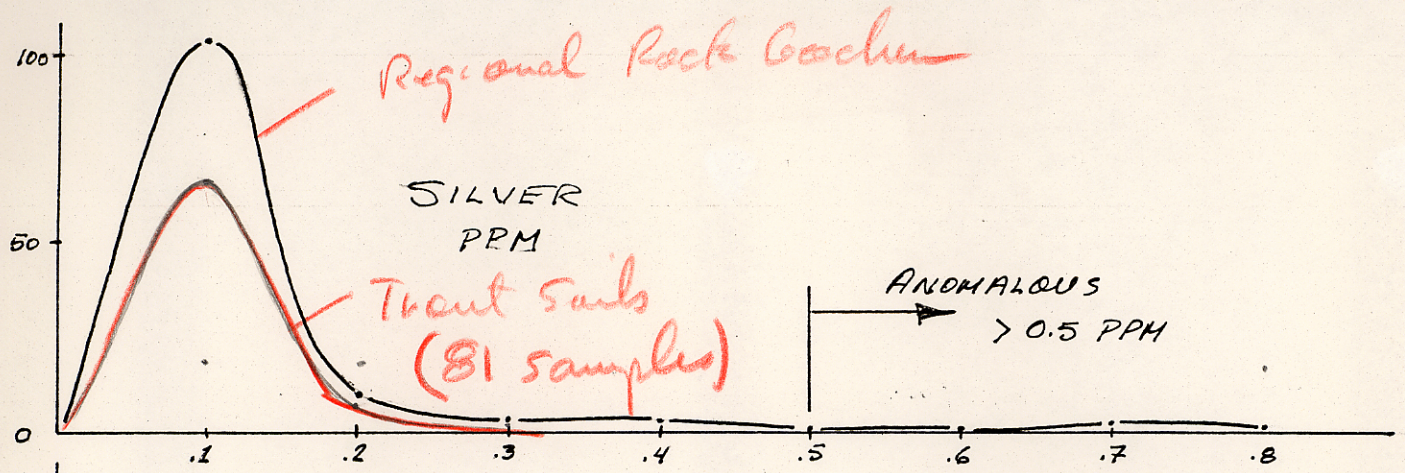 100
Regional Rock Geochem
SILVER
PPM
50
Trout Soils
(81 samples)
ANOMALOUS
> 0.5 PPM
0
.1 .2 .3 .4 .5 .6 .7 .8